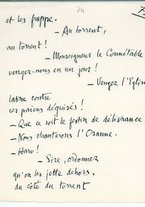 74
et les frappe.
— Au torrent,
au torrent !
— Monseigneur le Connétable
vengez-nous en un jour !
— Vengez l'Eglise
latine contre
ces païens déguisés !
— Que ce soit le festin de délivrance
— Nous chanterons l'Osanna.
— Haro !
— Sire, ordonnez
qu'on les jette dehors,
du côté du torrent